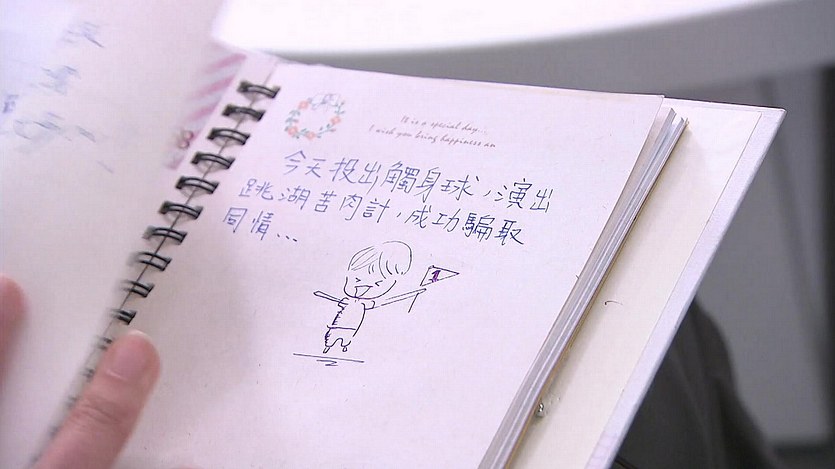 It is a special day...
I wish you bring happiness an
今天投出觸身球，演出
跳湖苦肉計，成功騙取
同情…